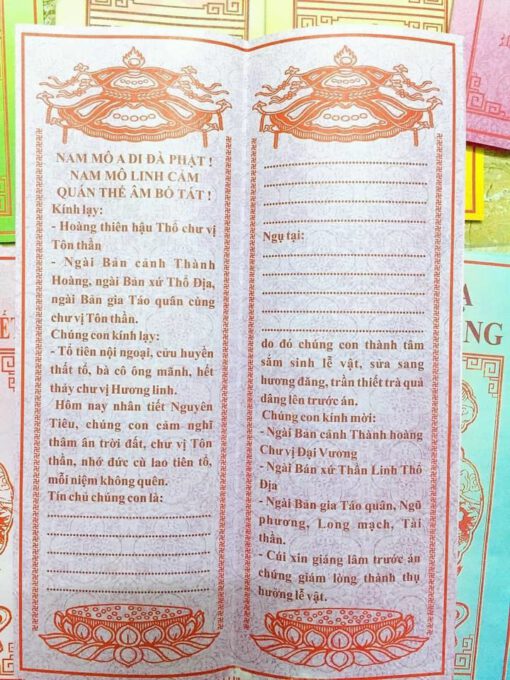 NAM MÔ A DI ĐÀ PHẬT !
NAM MÔ LINH CẢM
QUÁN THẾ ÂM BỒ TÁT !
Kính lạy:
- Hoàng thiên hậu Thổ chư vị
Tôn thần
- Ngài Bản cảnh Thành
Hoàng, ngài Bản xứ Thổ Địa,
ngài Bản gia Táo quân cùng
chư vị Tôn thần.
Chúng con kính lạy:
- Tổ tiên nội ngoại, cửu huyền
thất tổ, bà cô ông mãnh, hết
thảy chư vị Hương linh.
Hôm nay nhân tiết Nguyên
Tiêu, chúng con cảm nghĩ
thâm ân trời đất, chư vị Tôn
thần, nhớ đức cù lao tiên tổ,
mỗi niệm không quên.
Tín chủ chúng con là:
Ngụ tại:
do đó chúng con thành tâm
sắm sinh lễ vật, sửa sang
hương đăng, trần thiết trà quả
dâng lên trước án.
Chúng con kính mời:
- Ngài Bản cảnh Thành hoàng
Chư vị Đại Vương
- Ngài Bản xứ Thần Linh Thổ
Địa
- Ngài Bản gia Táo quân, Ngũ
phương, Long mạch, Tài
thần.
- Cúi xin giáng lâm trước án
chứng giám lòng thành thụ
hưởng lễ vật.